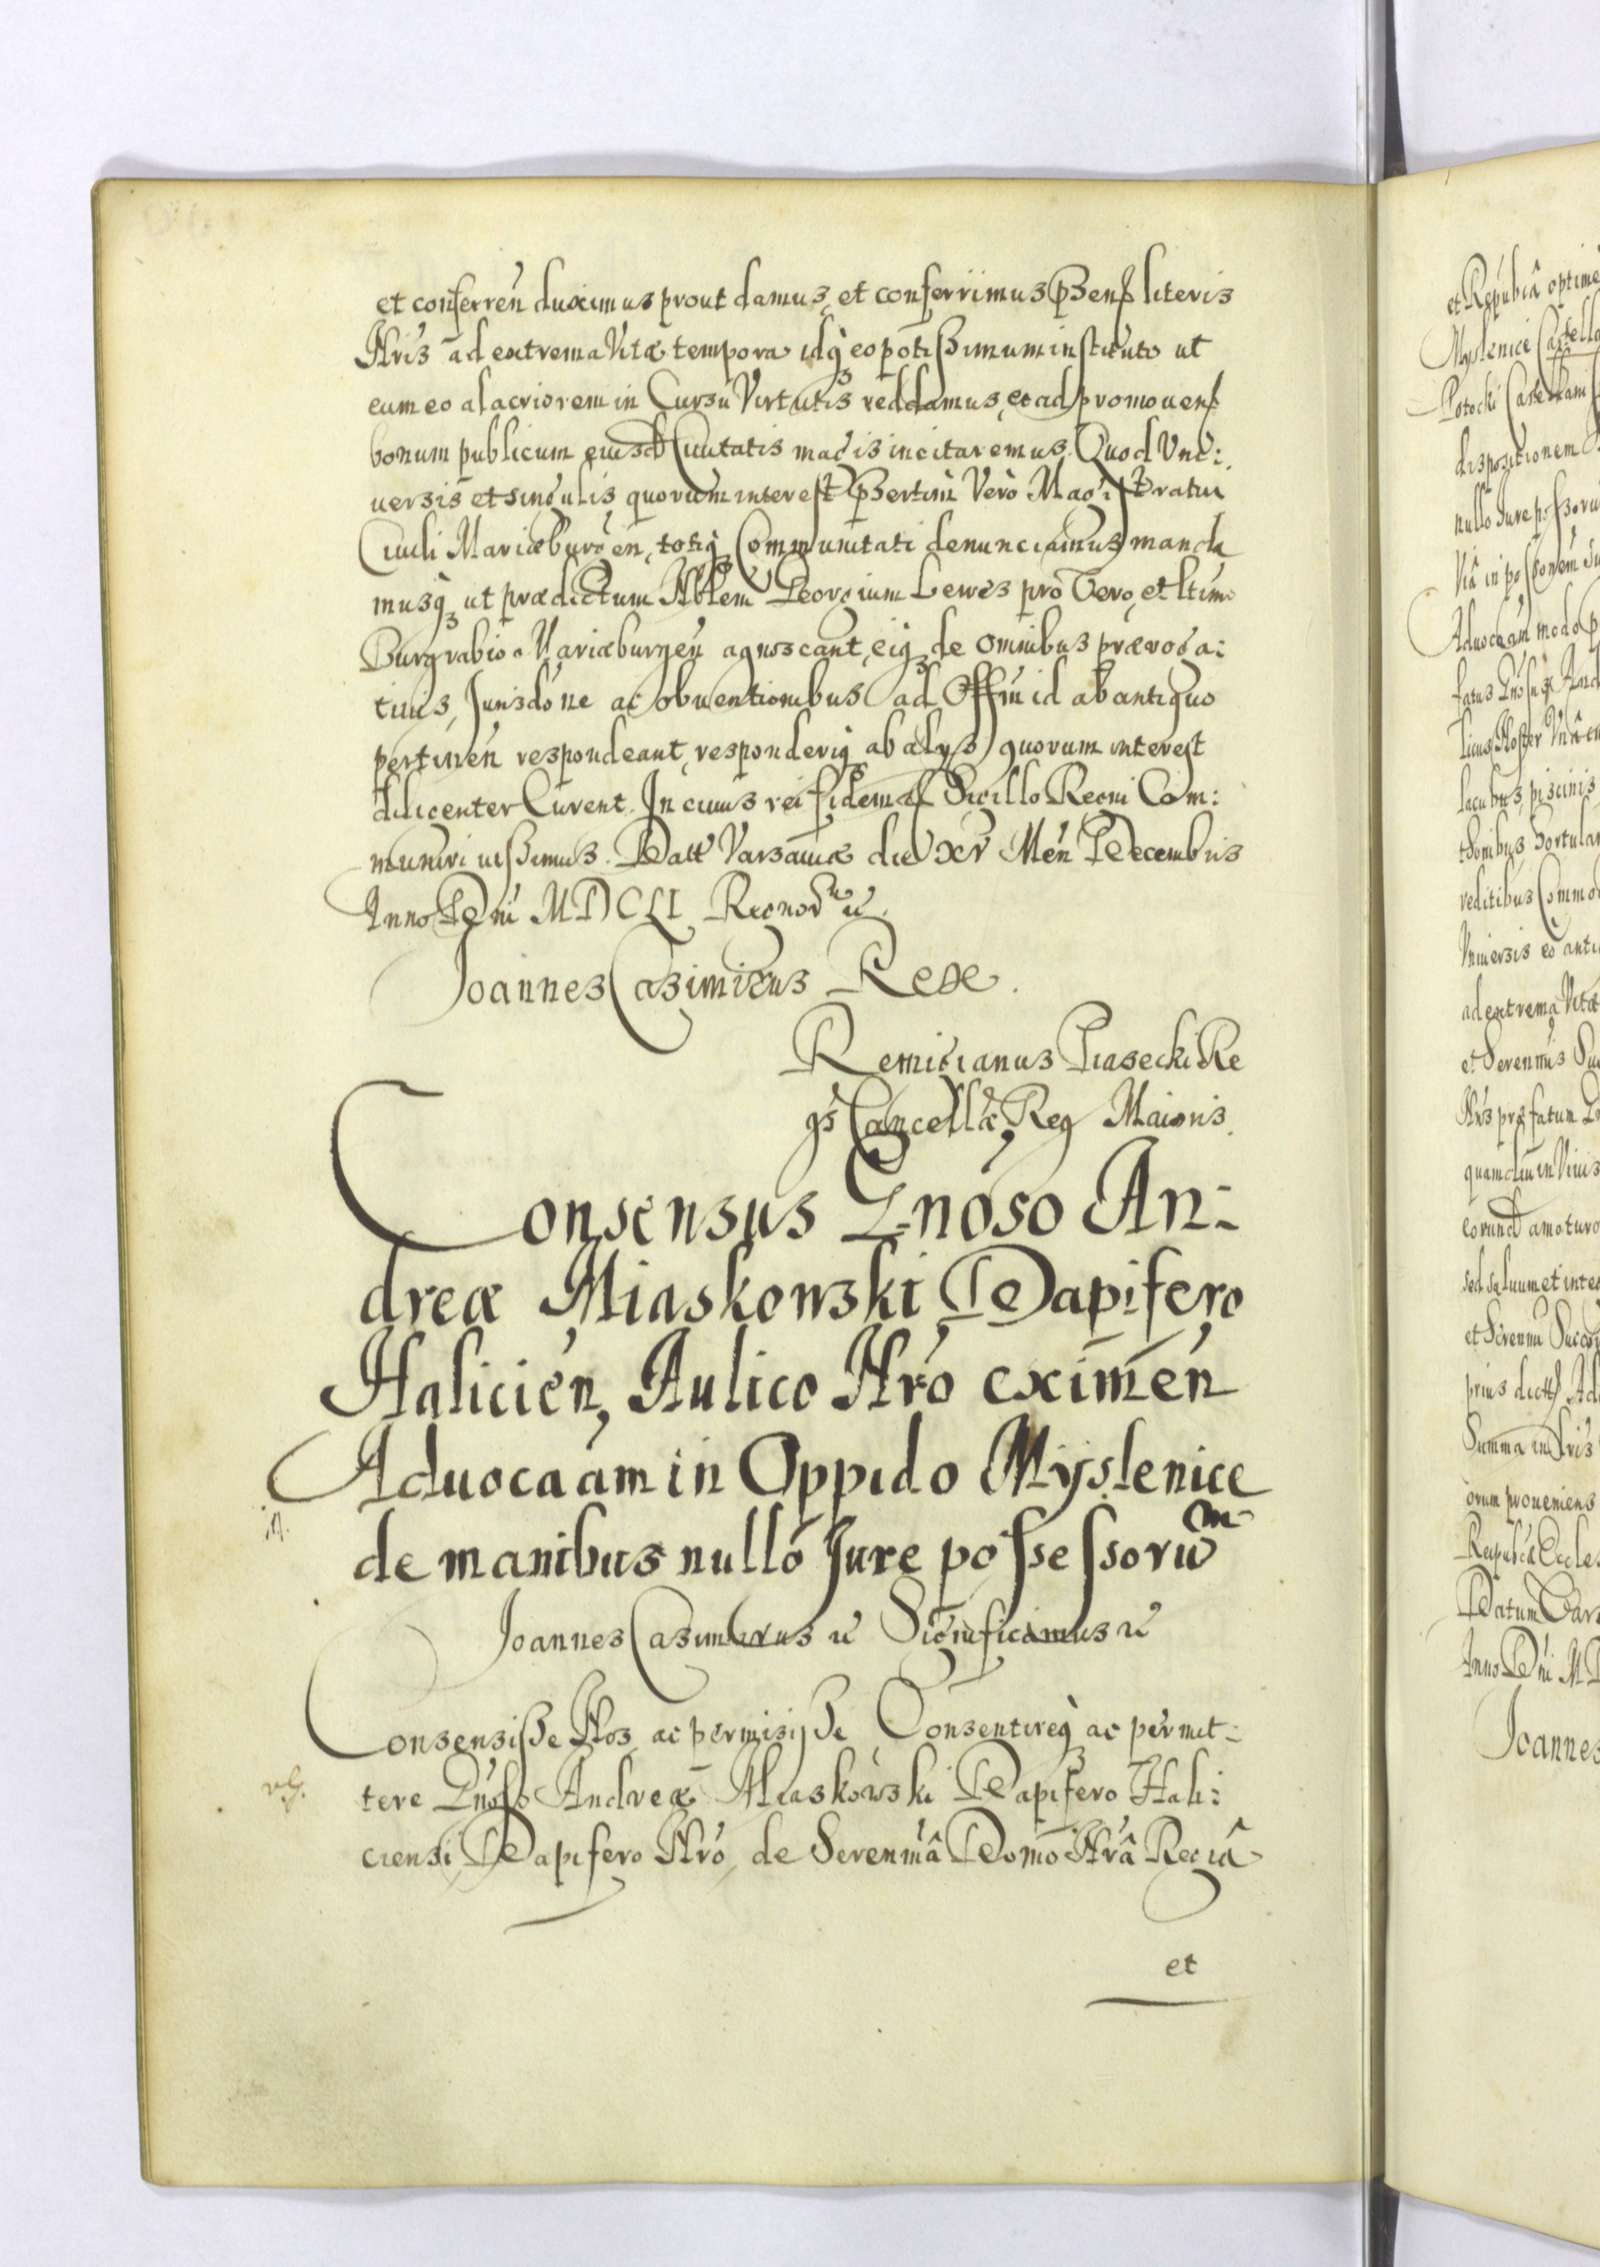 et conferren duximus prout damus, et conferrimus pñsens literis
Nris ad extrema Vitæ tempora idq eo potissimum instituto ut
eum eo alacriorem in Cursu Virtutis reddamus, et ad promouens
bonum publicum eiusd Ciuitatis magis incitaremus. Quod Vni:
uersis et singulis quorum interest psertim Vero Magistratui
Ciuili Mariæburgen, totiq Communitati denunciamus manda
musq ut prædictum Nblem Georgium Lewes pro Vero, et ltimo
Burgrabio Mariæburgen agnoscant, eiq de omnibus præroga:
tiuis, Jurisdone ac obuentionibus ad Offm id ab antiquo
pertinen respondeant, responderiq ab alys quorum interest
diligenter Curent. In cuius rei fidem Sigillo Regni Com:
muniri iussimus. Datt Varsauiæ die XV Men Decembris
Anno Dni MDCLI Regnor
Joannes Casimirus Rex.
Remigianus Piasecki Re
gs Cancellæ Reg Maioris.
Consensus Gnoso An:
dreæ Miaskowski Dapifero
Halicien, Aulico Nro eximen
Aduocaam in Oppido Myslenice
de manibus nullo Jure possessorum
Joannes Casimirus Significamus
Consensisse Nos, ac permisisse Consentireq ac permit:
tere Gnoso Andreæ Miaskowski Dapifero Hali:
ciensi, Dapifero Nro, de Serenmâ Domo Nrâ Regiâ
et
et Republicâ optime
Myslenice Castella
Potocki Castellani
dispositionem
nullo Jure possessoru
Aduocaam modo p
lacubus, piscinis
reditibus Commo
Vniuersis eo anti
ad extrema Vitæ
et Serenmis Suc
Nris præfatum
quamdiu in Viuis
sed saluum et inte
Summa in
orum proueniens
Datum Vars
Anno Dni MD
Joannes